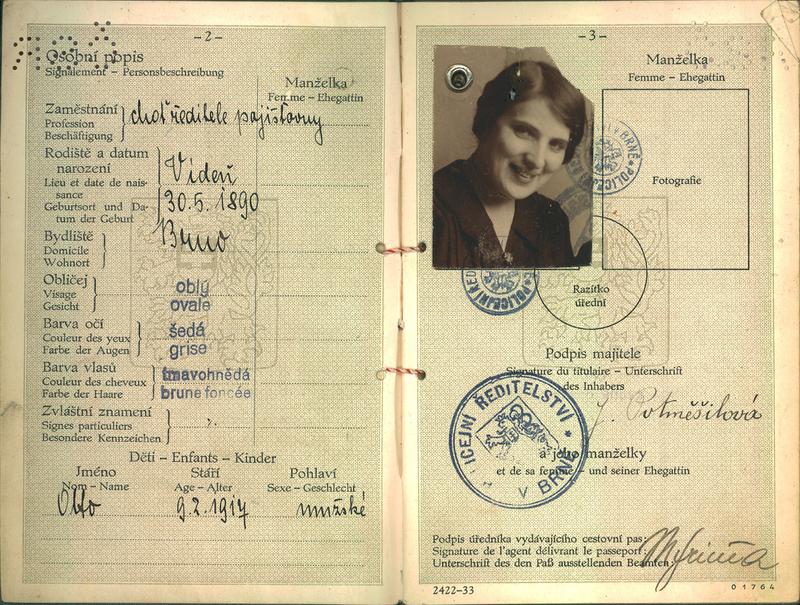 – 2 –
Osobní popis
Signalement – Personsbeschreibung
Manželka
Femme – Ehegattin
Zaměstnání
Profession
Beschäftigung
choť ředitele pojišťovny
Rodiště a datum
narození
Lieu et date de nais-
sance
Geburtsort und Da-
tum der Geburt
Vídeň
30.5. 1890
Bydliště
Domicile
Wohnort
Brno
Obličej
Visage
Gesicht
oblý
ovale
Barva očí
Couleur des yeux
Farbe der Augen
šedá
grise
Barva vlasů
Couleur des cheveux
Farbe der Haare
tmavohnědá
brune foncée
Zvláštní znamení
Signes particuliers
Besondere Kennzeichen
Děti – Enfants – Kinder
Jméno
Nom – Name
Stáří
Age – Alter
Pohlaví
Sexe – Geschlecht
Otto 9.2.1917 mužské
– 3 –
Manželka
Femme – Ehegattin
Fotografie
Razítko
úřední
Podpis majitele
Signature du titulaire – Unterschrift
des Inhabers
J. Potměšilová
POLICEJNÍ ŘEDITELSTVÍ
V BRNĚ
a jeho manželky
et de sa femme – und seiner Ehegattin
Podpis úředníka vydávajícího cestovní pas:
Signature de l'agent délivrant le passeport:
Unterschrift des den Paß ausstellenden Beamten:
2422–33
01764